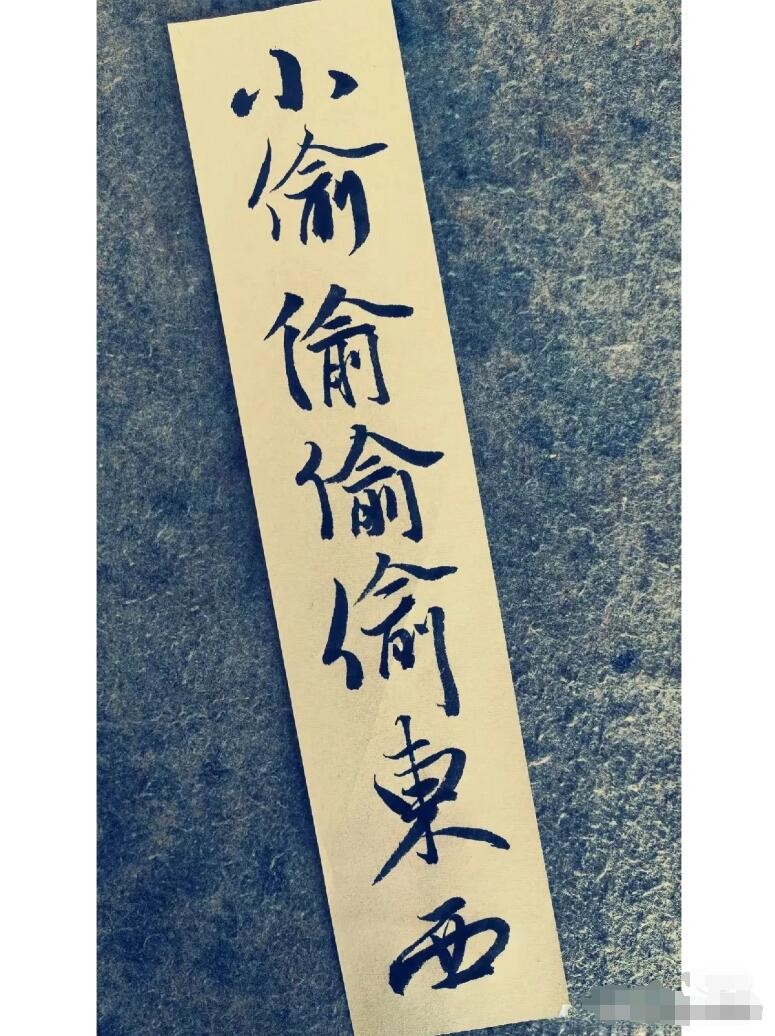 小偷偷偷偷東西